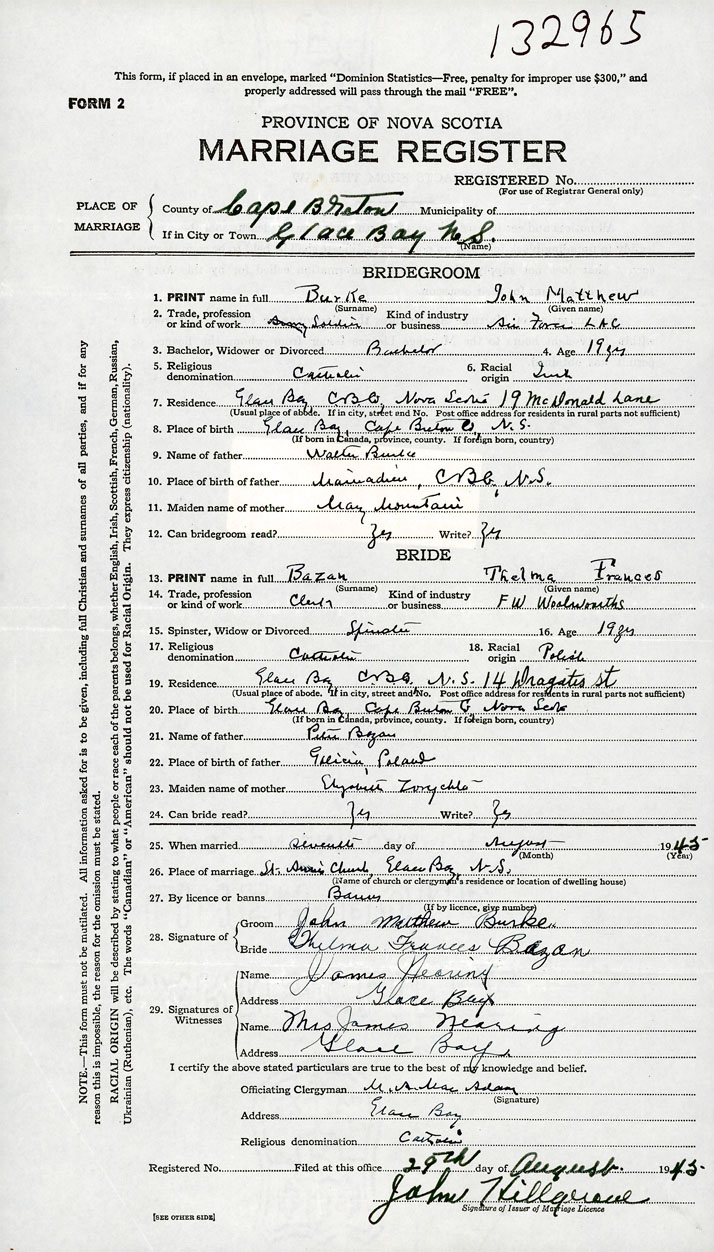 132965
This form, if placed in an envelope, marked “Dominion Statistics—Free, penalty for improper use $300,” and
properly addressed will pass through the mail “FREE”.
FORM 2
PROVINCE OF NOVA SCOTIA
MARRIAGE REGISTER
REGISTERED No.
(For use of Registrar General only)
PLACE OF MARRIAGE
County of Cape Breton Municipality of
If in City or Town Glace Bay N.S.
(Name)
BRIDEGROOM
1. PRINT name in full Burke John Matthew
(Surname) (Given name)
2. Trade, profession or kind of work Soldier Kind of industry or business Air Force LAC
3. Bachelor, Widower or Divorced Bachelor 4. Age 19 yrs
5. Religious denomination Catholic 6. Racial origin Irish
7. Residence Glace Bay CBCo, Nova Scotia 19 McDonald Lane
(Usual place of abode. If in city, street and No. Post office address for residents in rural parts not sufficient)
8. Place of birth Glace Bay, Cape Breton Co, N.S.
(If born in Canada, province, county. If foreign born, country)
9. Name of father Walter Burke
10. Place of birth of father Mainadieu, CBCo, N.S.
11. Maiden name of mother May Mountain
12. Can bridegroom read? Yes Write? Yes
BRIDE
13. PRINT name in full Bazan Thelma Frances
(Surname) (Given name)
14. Trade, profession or kind of work Clerk Kind of industry or business F W Woolworths
15. Spinster, Widow or Divorced Spinster 16. Age 19 yrs
17. Religious denomination Catholic 18. Racial origin Polish
19. Residence Glace Bay CBCo, N.S. 14 st
(Usual place of abode. If in city, street and No. Post office address for residents in rural parts not sufficient)
20. Place of birth Glace Bay Cape Breton Co Nova Scotia
(If born in Canada, province, county. If foreign born, country)
21. Name of father Peter Bazan
22. Place of birth of father Galicia, Poland
23. Maiden name of mother Elizabeth
24. Can bride read? Yes Write? Yes
25. When married seventh day of August 1945
(Month) (Year)
26. Place of marriage St. Church, Glace Bay, N.S.
(Name of church or clergyman’s residence or location of dwelling house)
27. By licence or banns Banns
(If by licence, give number)
28. Signature of
Groom John Matthew Burke
Bride Thelma Frances Bazan
29. Signatures of Witnesses
Name James Nearing
Address Glace Bay
Name Mrs James Nearing
Address Glace Bay
I certify the above stated particulars are true to the best of my knowledge and belief.
Officiating Clergyman M. A. MacAdam
(Signature)
Address Glace Bay
Religious denomination Catholic
Registered No. Filed at this office 25th day of August 1945
John Hillgrove
Signature of Issuer of Marriage Licence
[SEE OTHER SIDE]
NOTE.—This form must not be mutilated. All information asked for is to be given, including full Christian and surnames of all parties, and if for any
reason this is impossible, the reason for the omission must be stated.
RACIAL ORIGIN will be described by stating to what people or race each of the parents belongs, whether English, Irish, Scottish, French, German, Russian,
Ukrainian (Ruthenian), etc. The words “Canadian” or “American” should not be used for Racial Origin. They express citizenship (nationality).